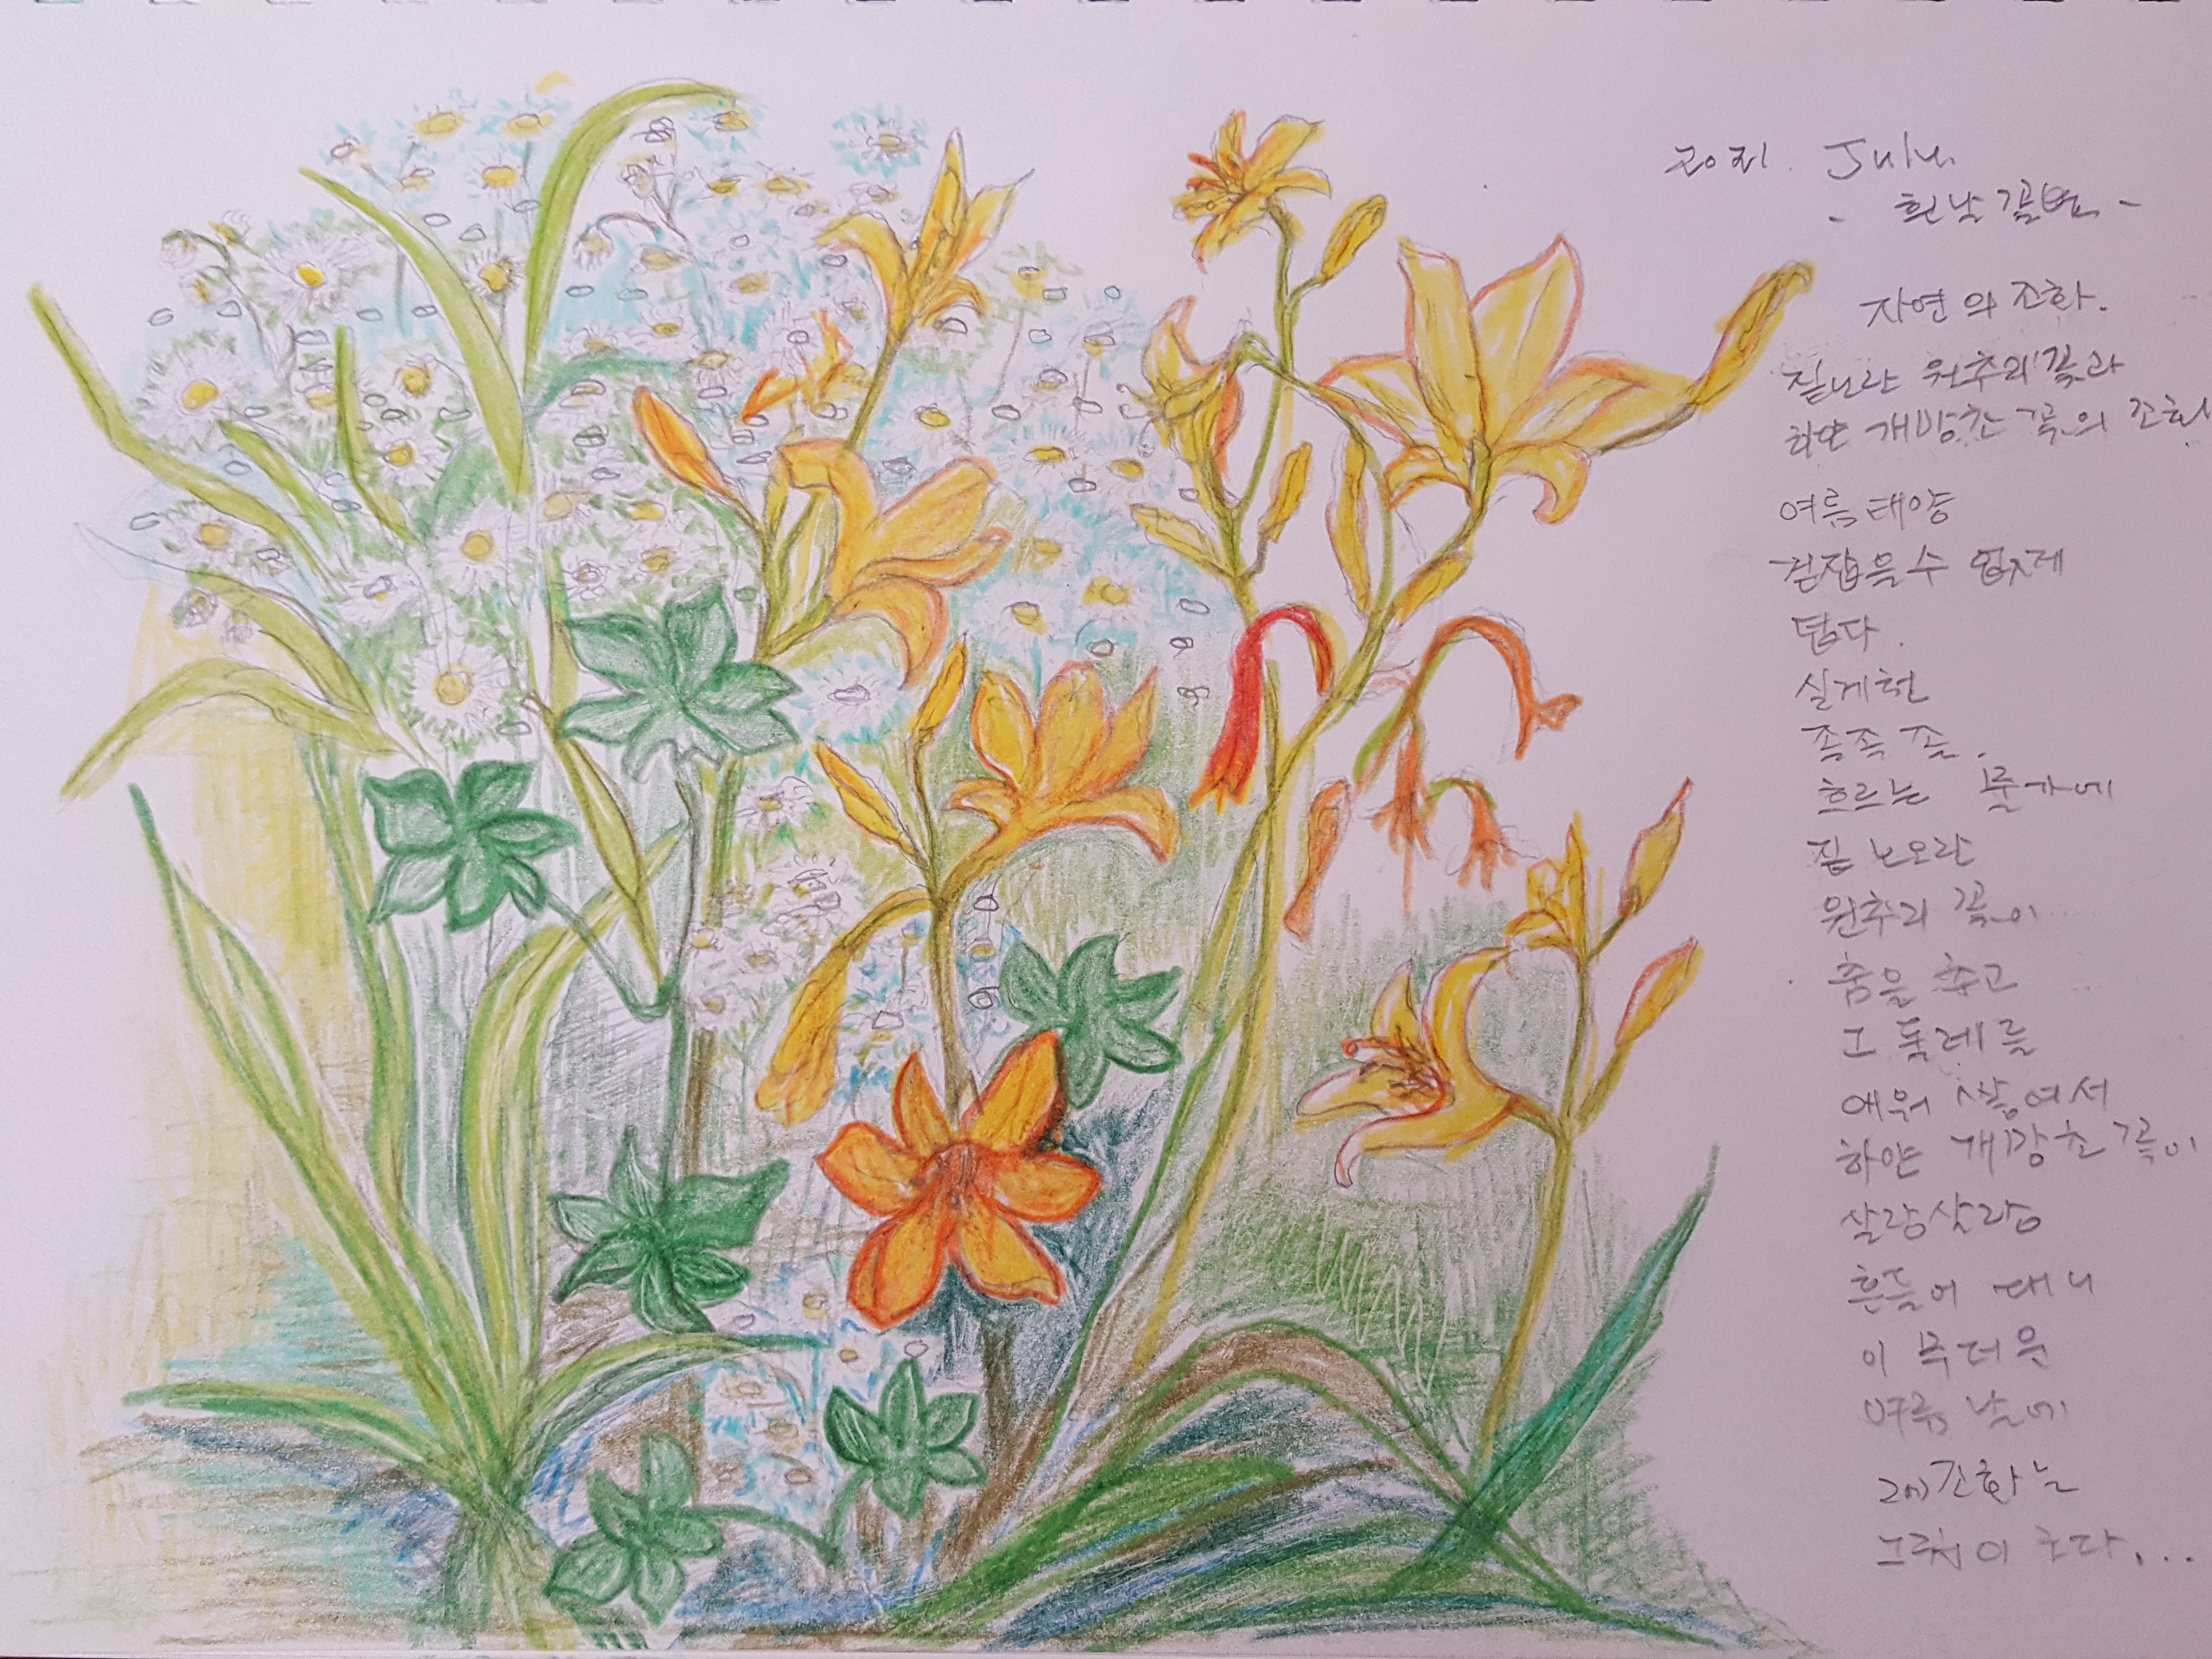 2021. July.
자연의 조화.
짙노란 원추리꽃과
하얀 개망초 꽃의 조화
여름 태양
걷잡을수 없게
덥다.
실개천
졸졸 졸.
흐르는 물가에
짙 노오란
원추리 꽃이
춤을 추고
그 둘레를
에워 쌓여서
하얀 개망초 꽃이
살랑살랑
흔들어 대니
이 무더운
여름 날에
조화는
그럼이 로다...